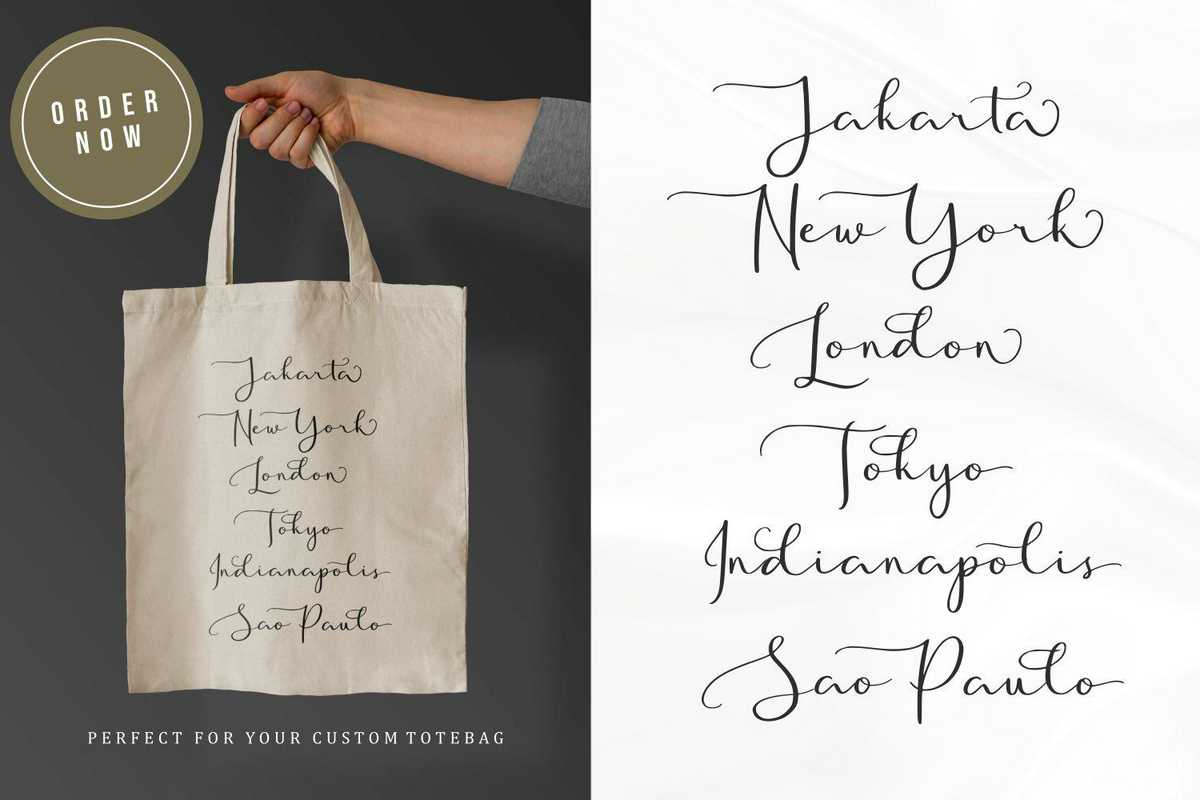 ORDER
NOW
Jakarta
New York
London
Tokyo
Indianapolis
Sao Paulo
PERFECT FOR YOUR CUSTOM TOTEBAG
Jakarta
New York
London
Tokyo
Indianapolis
Sao Paulo